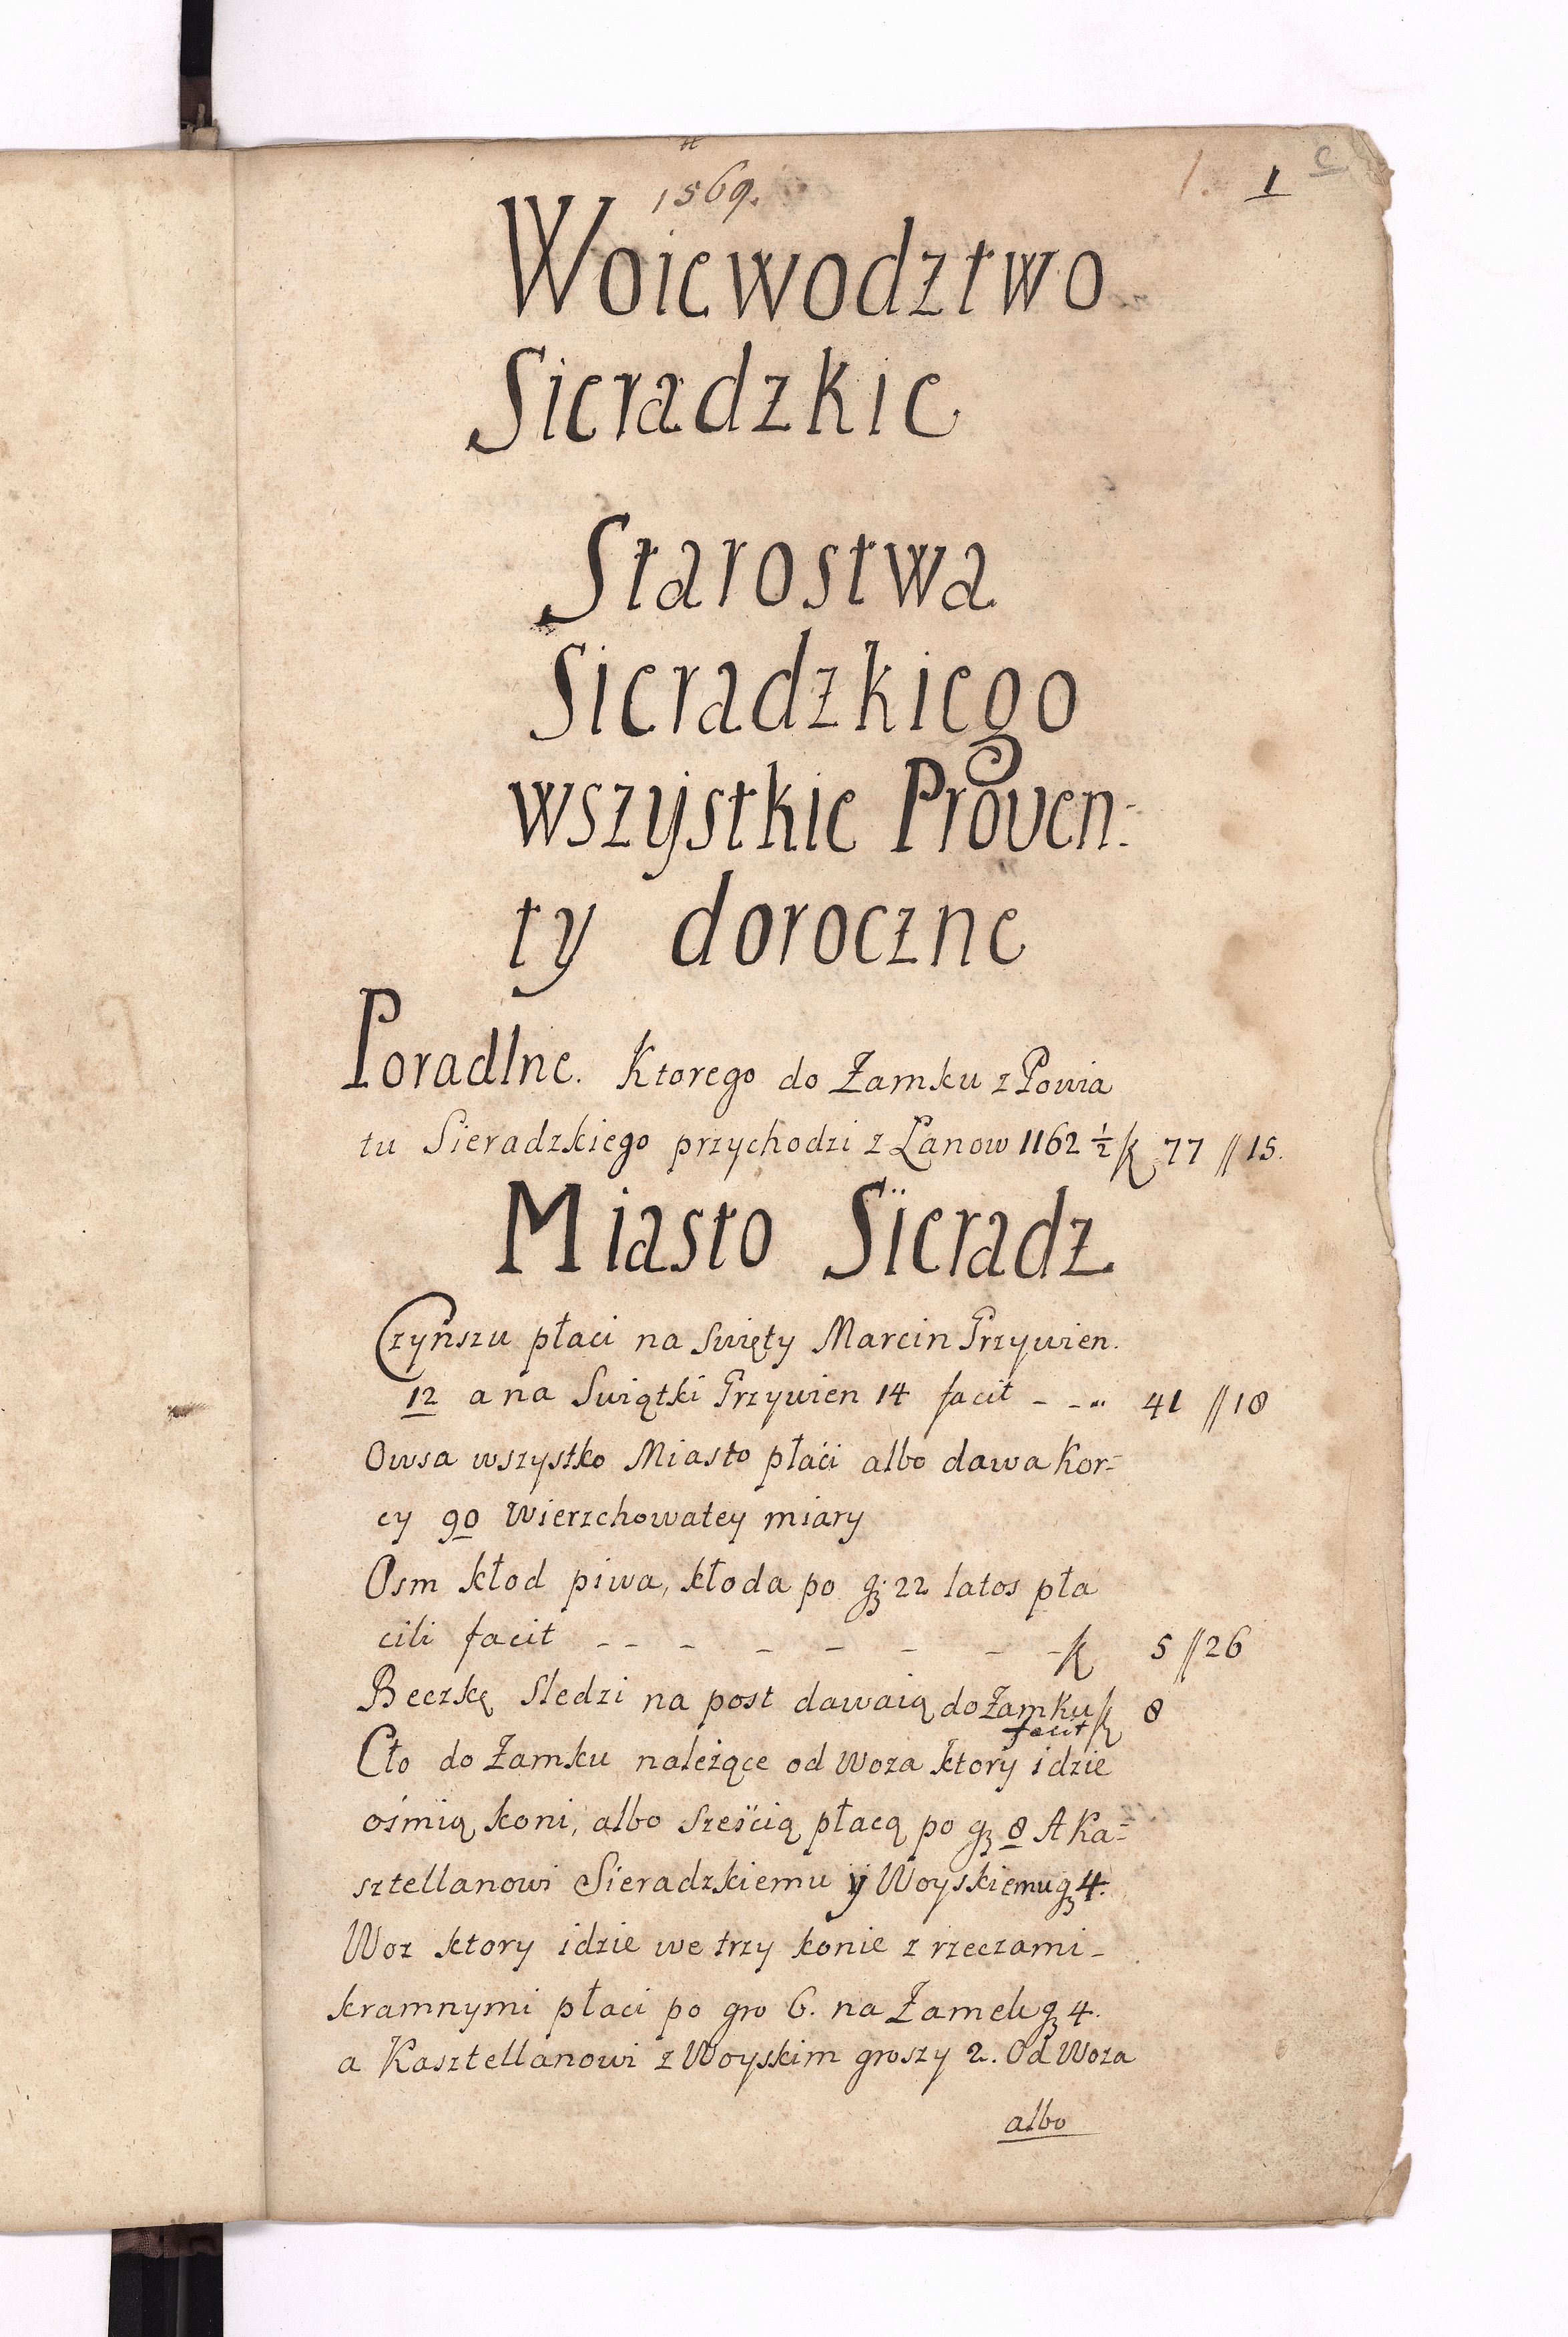 1569.
1. 1
Woiewodztwo
Sieradzkie
Starostwa
Sieradzkiego
wszystkie Proven:
ty doroczne
Poradlne. Ktorego do Zamku z Powia
tu Sieradzkiego przychodzi z Łanow 1162 ½ 77 // 15.
Miasto Sieradz
Czynszu płaci na Swięty Marcin Grzywien.
12 a na Swiątki Grzywien 14 facit - - - 41 // 18
Owsa wszystko Miasto płaci albo dawa Kor-
cy 90 Wierzchowatey miary
Osm kłod piwa, kłoda po g. 22 latos pła
cili facit - - - - - - - - 5 // 26
Beczkę Sledzi na post dawaią do Zamku 8
facit
Cło do Zamku należące od Woza ktory idzie
ośmią koni, albo sześcią płacą po g 8 A Ka-
sztellanowi Sieradzkiemu y Woyskiemu g 4.
Woz ktory idzie we trzy konie z rzeczami-
kramnymi płaci po gro 6. na Zamek g 4.
a Kasztellanowi z Woyskim groszy 2. Od Woza
albo